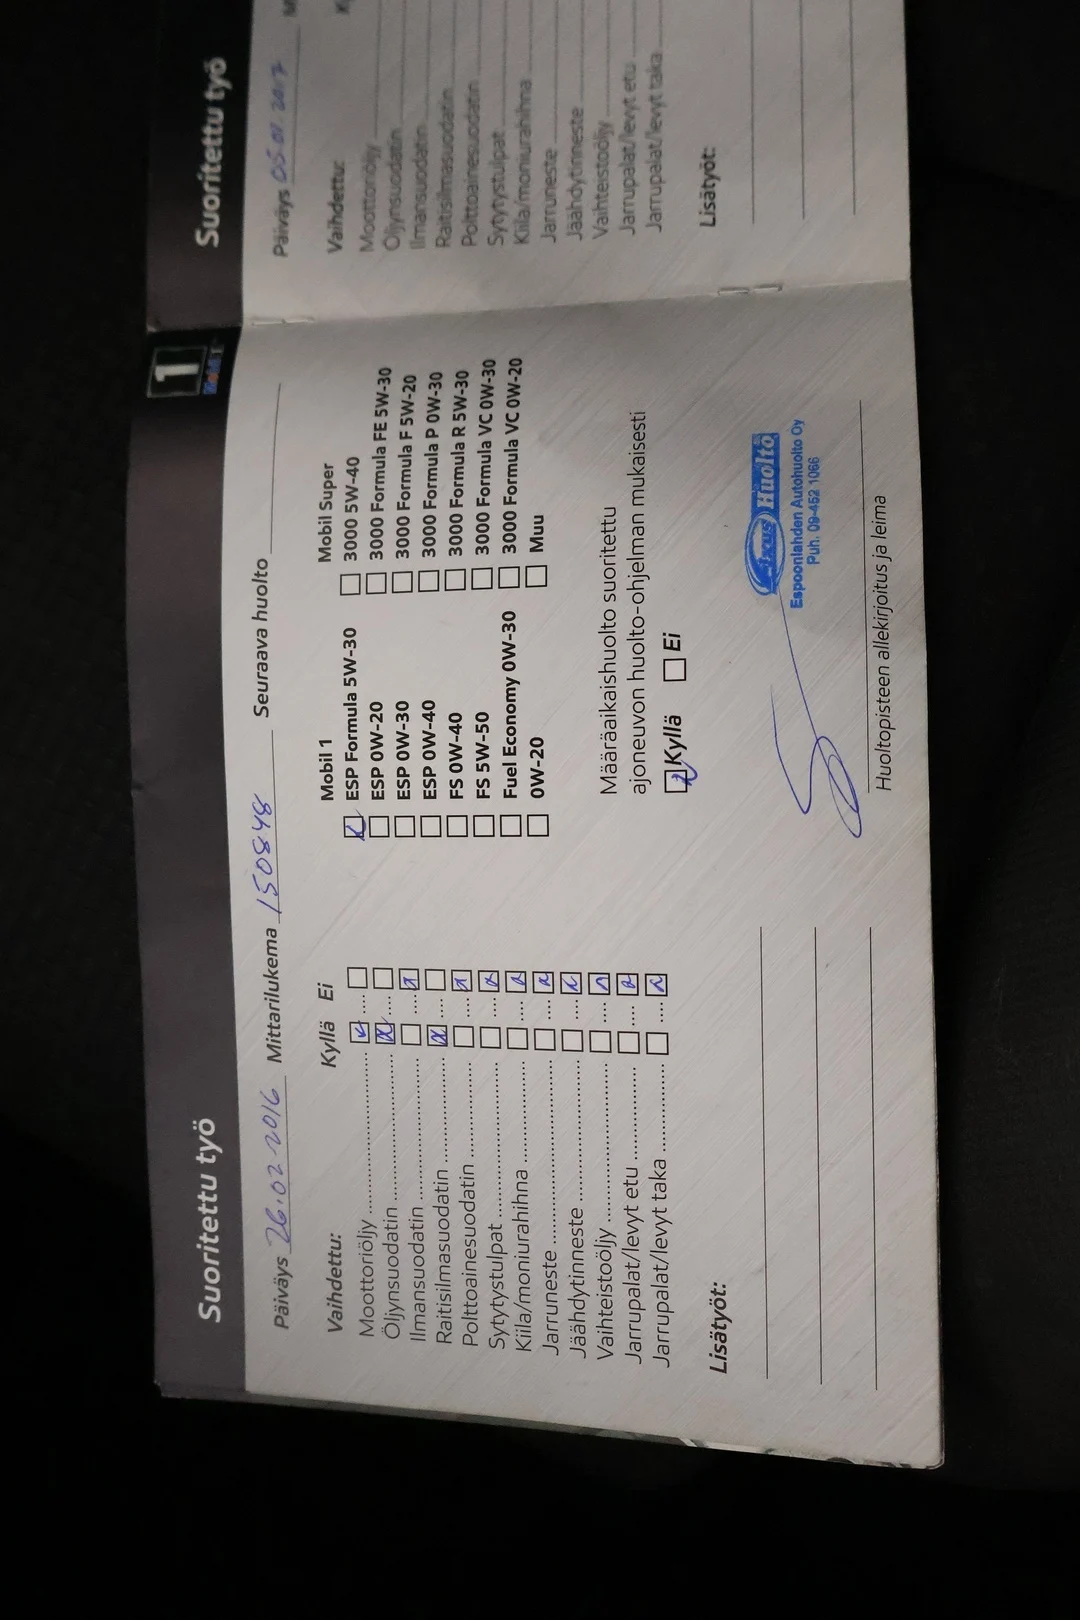 Suoritettu työ
1
Mobil 1
Päiväys 26.02.2016 Mittarilukema 150848 Seuraava huolto
Vaihdettu: Kyllä Ei
Moottoriöljy
Öljynsuodatin
Ilmansuodatin
Raitisilmasuodatin
Polttoainesuodatin
Sytytystulpat
Kiila/moniurahihna
Jarruneste
Jäähdytinneste
Vaihteistoöljy
Jarrupalat/levyt etu
Jarrupalat/levyt taka
Lisätyöt:
Mobil 1
ESP Formula 5W-30
ESP 0W-20
ESP 0W-30
ESP 0W-40
FS 0W-40
FS 5W-50
Fuel Economy 0W-30
0W-20
Mobil Super
3000 5W-40
3000 Formula FE 5W-30
3000 Formula F 5W-20
3000 Formula P 0W-30
3000 Formula R 5W-30
3000 Formula VC 0W-30
3000 Formula VC 0W-20
Muu
Määräaikaishuolto suoritettu
ajoneuvon huolto-ohjelman mukaisesti
Kyllä Ei
fixus Huolto
Espoonlahden Autohuolto Oy
Puh. 09-452 1066
Huoltopisteen allekirjoitus ja leima
Suoritettu työ
Päiväys 05.01.2017 M
Vaihdettu:
Moottoriöljy
Öljynsuodatin
Ilmansuodatin
Raitisilmasuodatin
Polttoainesuodatin
Sytytystulpat
Kiila/moniurahihna
Jarruneste
Jäähdytinneste
Vaihteistoöljy
Jarrupalat/levyt etu
Jarrupalat/levyt taka
Lisätyöt: